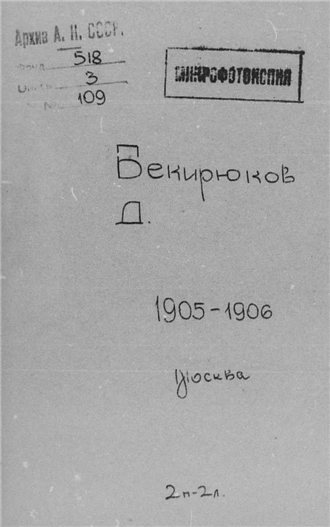 Архив А. Н. СССР.
фонд 518
опись 3
№ 109
МИКРОФОТОКОПИЯ
Бекирюков
Д.
1905-1906
Москва
2п-2л.